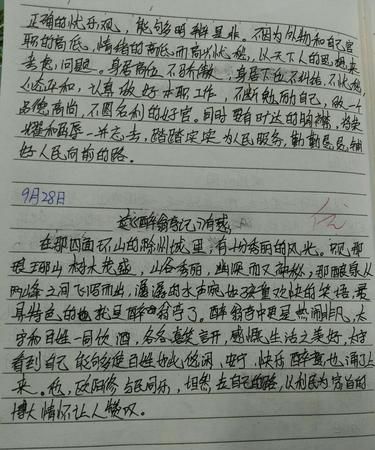 正确的忧乐观，能够明辨是非。不因为外物和自己官
职的高低，情绪的高低而高兴忧愁，以天下人的思想来
考虑问题。身居高位不骄傲，身居下位不纠结，不忧愁，
心态平和，认真做好本职工作，不断勉励自己，做一个
品德高尚，不图名利的好官。同时要有旷达的胸襟，将荣
耀和屈辱一并忘去，踏踏实实为人民服务，勤勤恳恳铺
好人民向前的路。
9月28日
读《醉翁亭记》有感
优
在那四面环山的滁州城里，有十分秀丽的风光。那
琅玡山树木茂盛，山谷秀丽，幽深而又那酿泉从
两峰之间飞泻而出，潺潺的水声宛如孩童欢快的笑语，最
具特色的也就是醉翁亭了。醉翁亭中更是热闹非凡，太
守和百姓一同饮酒，各各喜笑言开，感慨生活之美好，太守
看到自己能够使百姓如此悠闲、安宁，快乐醉意也涌了上
来。他，欧阳修与民同乐，坦然走自己的路，以利民为宗旨的
博大情怀让人赞叹。